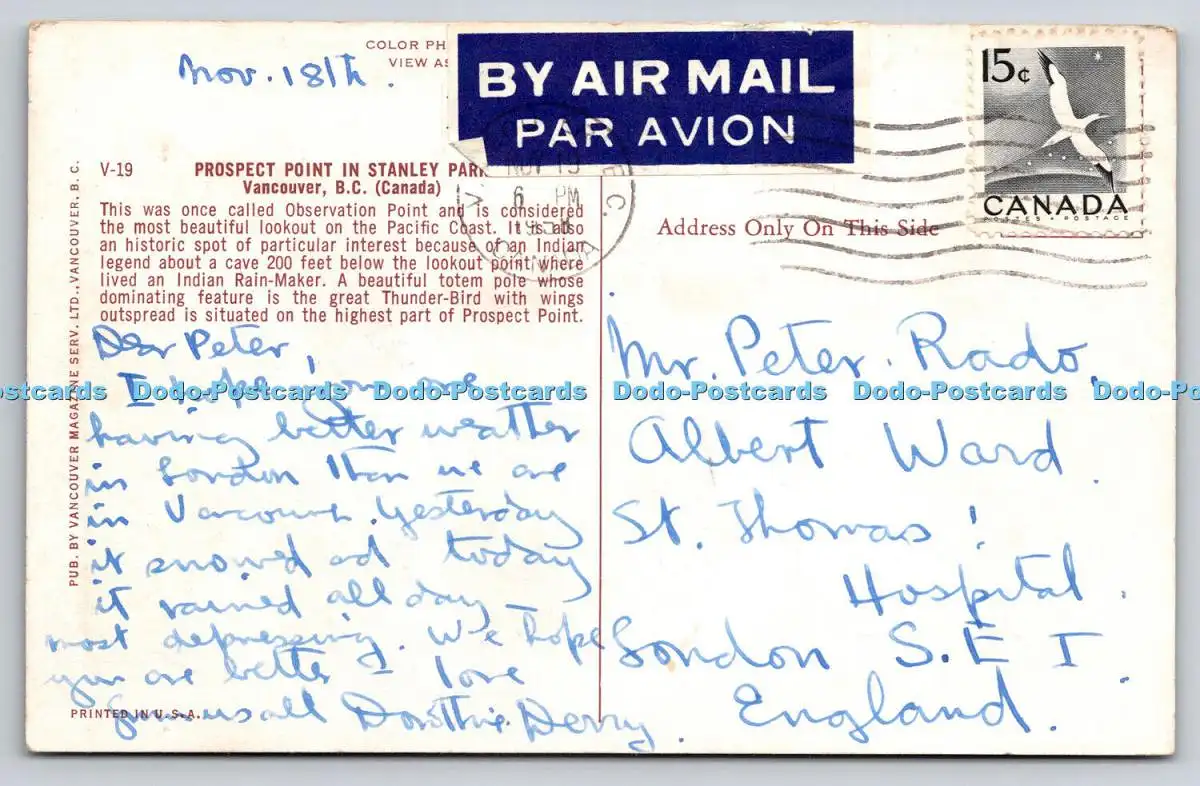 Nov. 18th.
COLOR PH
VIEW AS
BY AIR MAIL
PAR AVION
15¢
CANADA
POSTES • POSTAGE
NOV 19
6 PM
CANADA
V-19 PROSPECT POINT IN STANLEY PARK
Vancouver, B.C. (Canada)
This was once called Observation Point and is considered
the most beautiful lookout on the Pacific Coast. It is also
an historic spot of particular interest because of an Indian
legend about a cave 200 feet below the lookout point where
lived an Indian Rain-Maker. A beautiful totem pole whose
dominating feature is the great Thunder-Bird with wings
outspread is situated on the highest part of Prospect Point.
PUB. BY VANCOUVER MAGAZINE SERV. LTD., VANCOUVER, B. C.
Address Only On This Side
Dear Peter,
I hope you are
having better weather
in London than we are
in Vancouver. Yesterday
it snowed ad today
it rained all day –
most depressing. We hope
you are better – love
from us all Dorothie Derry.
PRINTED IN U.S.A.
Mr. Peter Rado,
Albert Ward.
St. Thomas'
Hospital.
London S.E 1
England.
Dodo-Postcards Dodo-Postcards Dodo-Postcards Dodo-Postcards Dodo-Postcards